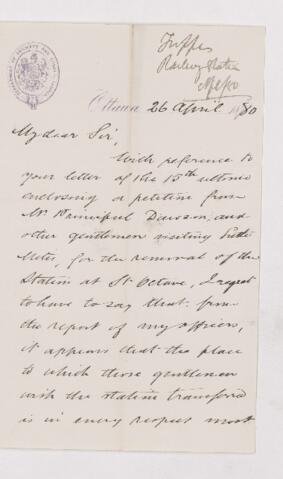 Railway Station
Ottawa 26 April 1880
My dear Sir,
With reference to
your letter of the 15th ultimo
enclosing a petition from
Mr Principal Dawson, and
other gentlemen visiting Little
Metis, for the removal of the
Station at St Octave, I regret
to have to say that from
the report of my officers,
it appears that the place
to which those gentlemen
wish the station transferred
is in every respect most